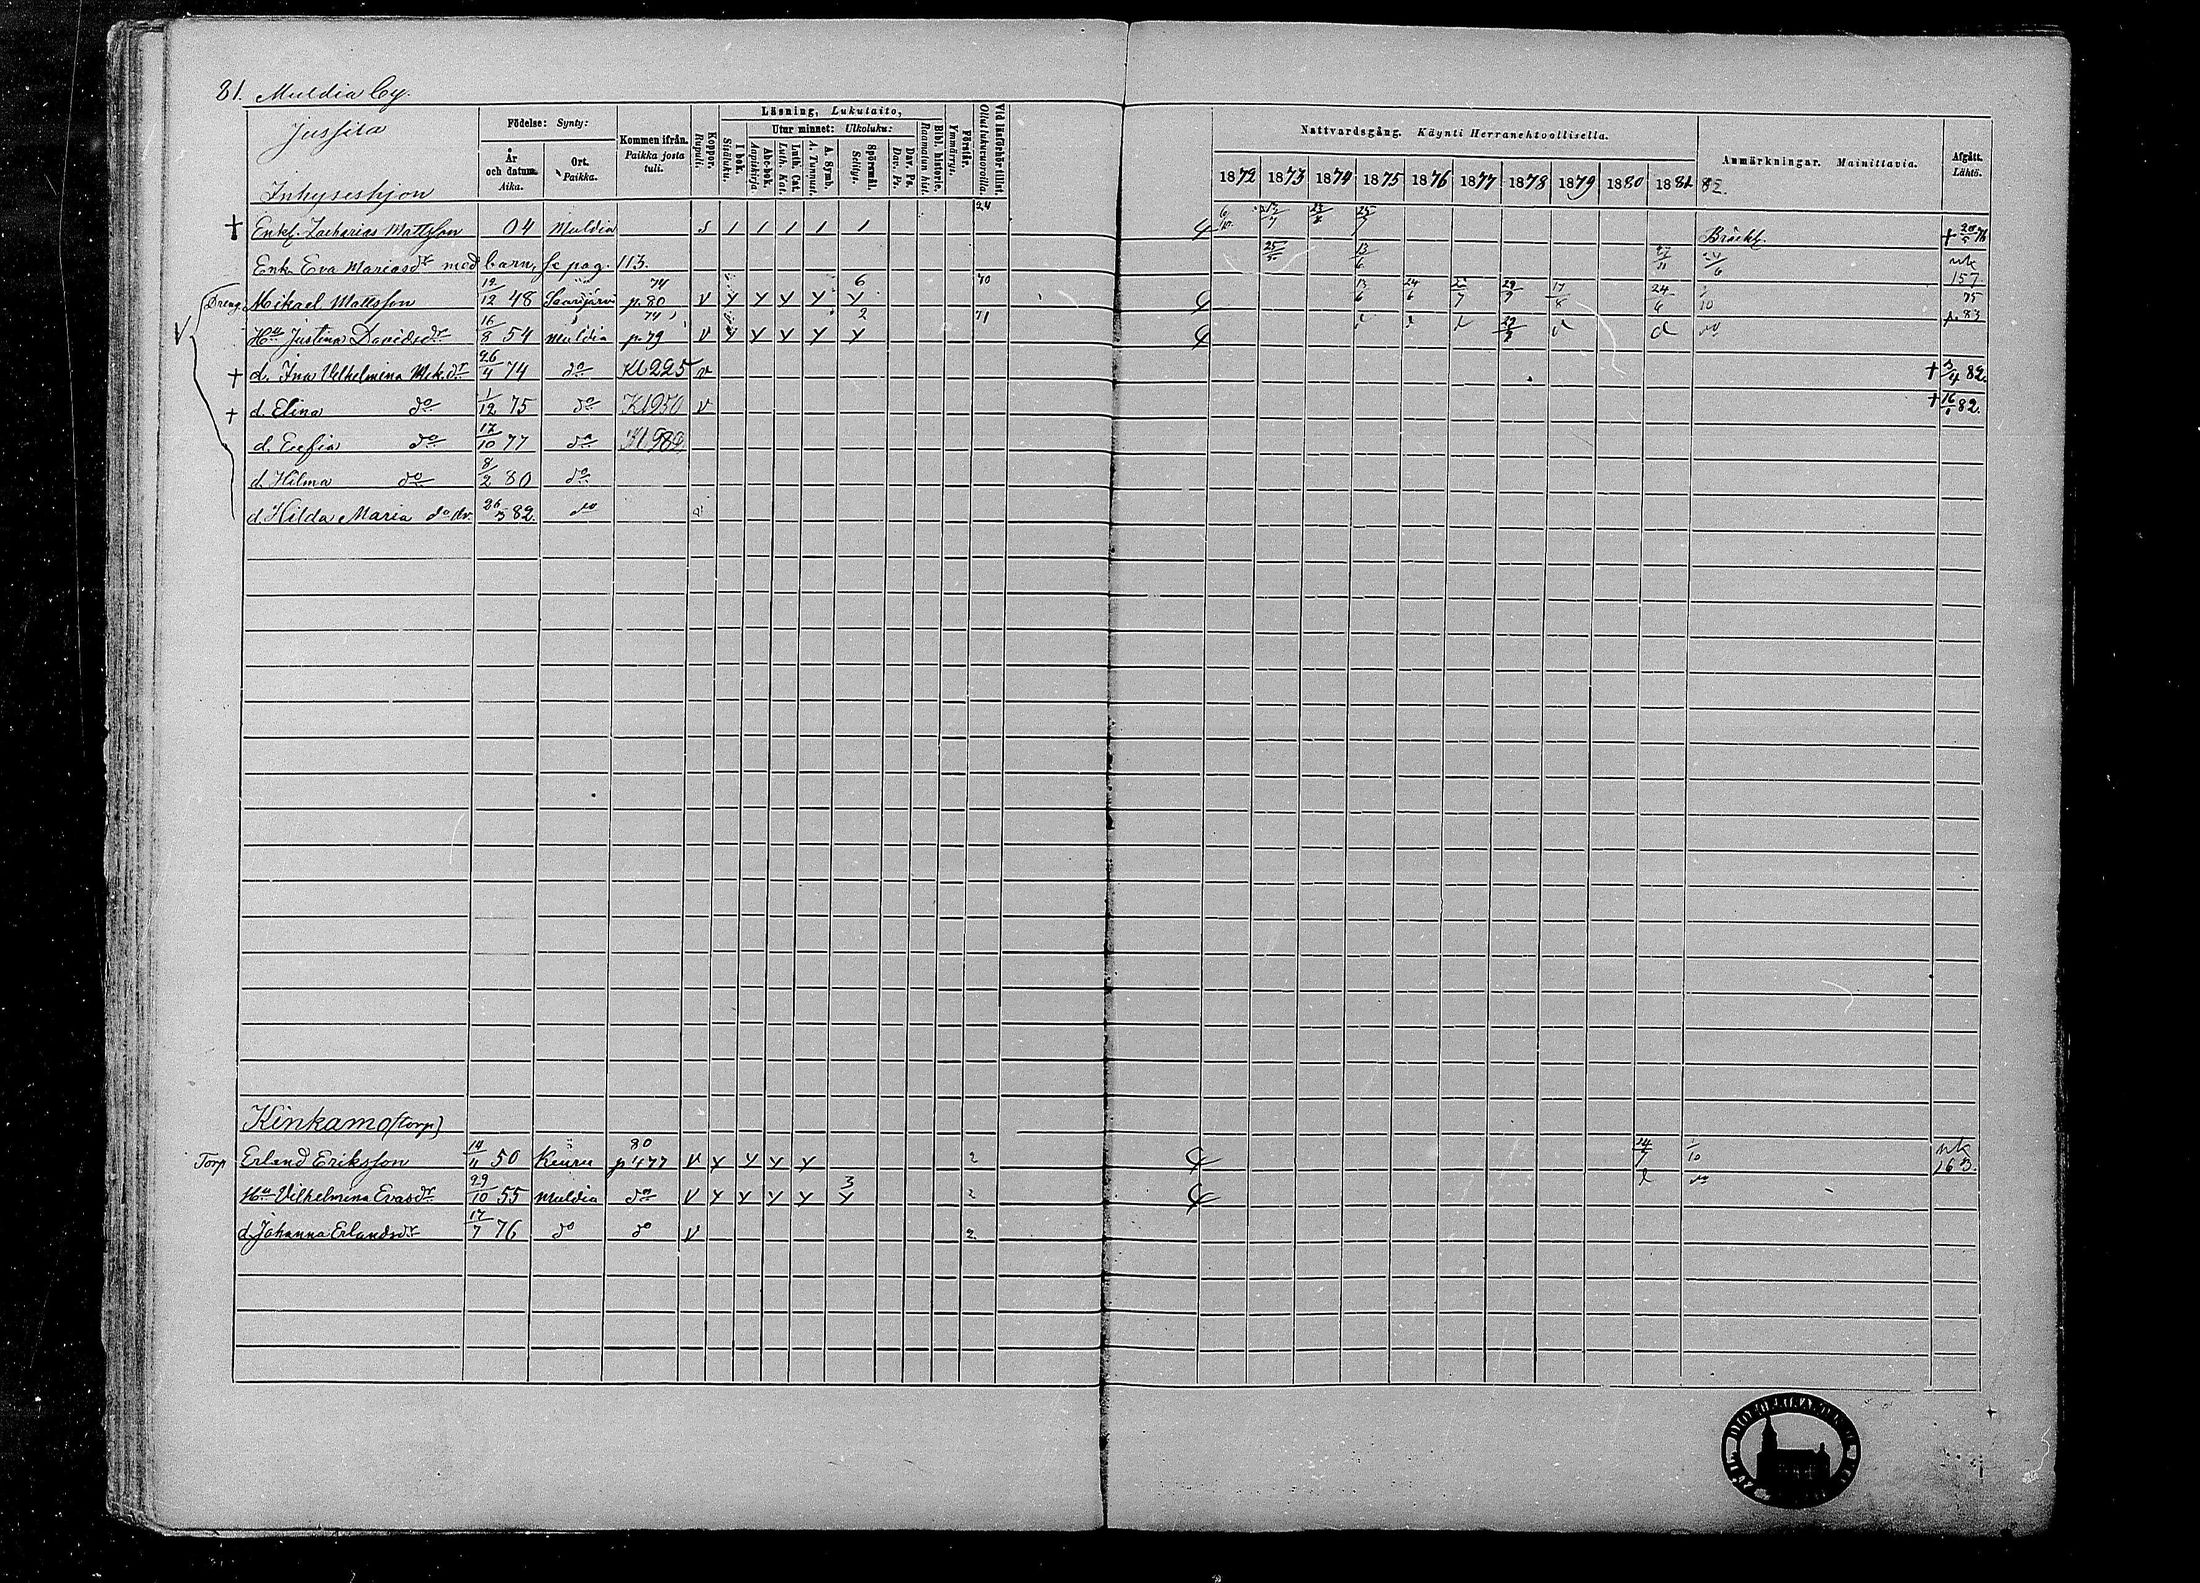 81. Muldia by.
Jussila
Inhyseshjon
Födelse: Synty:
År och datum. Aika.
Ort. Paikka.
Kommen ifrån. Paikka josta tuli.
Koppor. Rupuli.
Läsning, Lukutaito,
Utur minnet: Ulkoluku:
I bok. Sisäluku.
Abc-bok. Aapiskirja.
Luth. Cat. Luth. Kat.
A. Symb. A. Tunnust.
Spörsmål. Selitys.
Dav. Ps. Dav. Ps.
Bibl. historie. Raamatun hist.
Förstår. Ymmärrys.
Vid läsförhör tillst. Ollut lukuvuoroilla.
Nattvardsgång. Käynti Herranehtoollisella.
1872 1873 1874 1875 1876 1877 1878 1879 1880 1881 82.
Anmärkningar. Mainittavia.
Afgått. Lähtö.
† Enkl. Zacharias Mattsson 04 Muldia s 1 1 1 1 1 24 6/10 Bräckl. † 20/5 76
Enk. Eva Mariasdr med barn, se pag. 113. 25/5 13/6
Dreng. Mikael Mattsson 19/12 48 Saarijärvi 74 p. 80 v y y y y 6 y 70 13/6 24/6 29/9 17/8 24/6 1/10
Hu Justina Davidsdr 16/8 54 Muldia 74 p. 79 v y y y y 2 y 71 d 29/9 d d
† d. Ina Vilhelmina Mik.dr 26/4 74 do Kl 225 v † 3/4 82.
† d. Elina do 1/12 75 do Kl 950 v † 16/1 82.
d. Eufia do 17/10 77 do Kl 989
d. Hilma do 8/2 80 do
d. Hilda Maria do 26/3 82. do
Kinkamo (torp)
Torp Erland Eriksson 14/11 50 Keuru 80 p 477 v y y y y 2 24/7 1/10 163.
Hu Vilhelmina Evasdr 29/10 55 Muldia do v y y y y 3 y 2 d
d. Johanna Erlandsdr 17/7 76 do do v 2